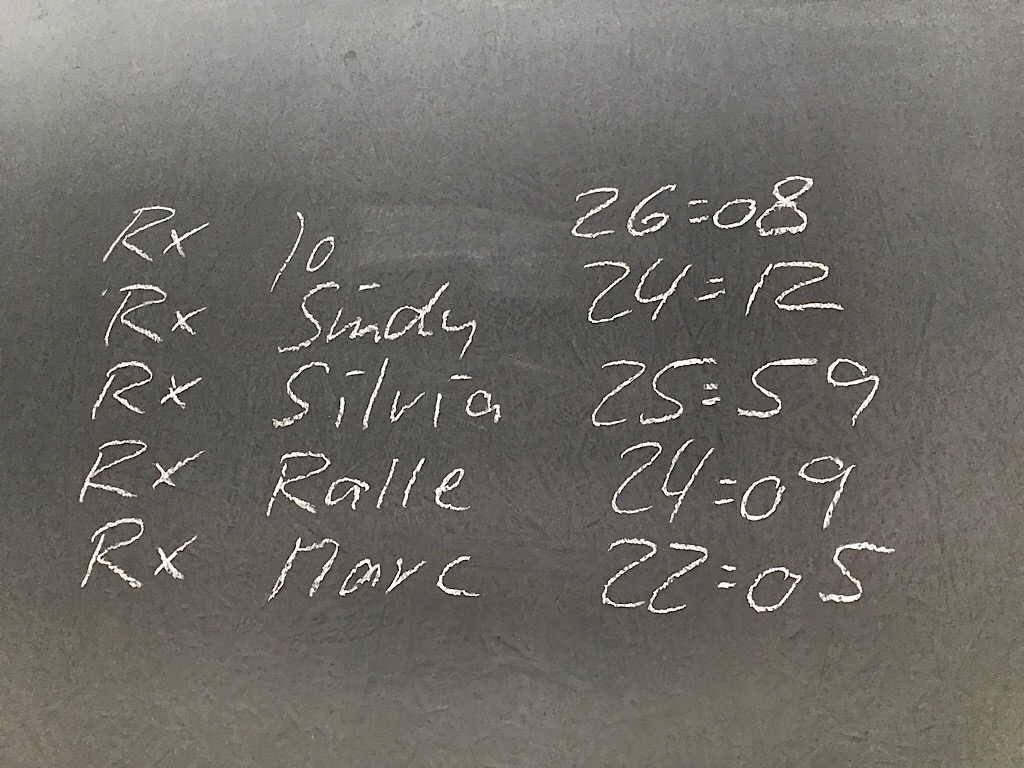 Rx Jo 26:08
Rx Sindy 24:12
Rx Silvia 25:59
Rx Ralle 24:09
Rx Marc 22:05